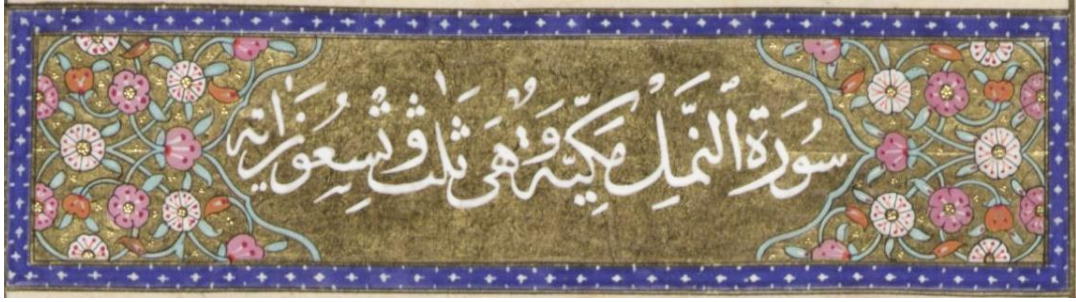 سُورَةُ النَّمْلِ مَكِّيَّةٌ وَهِىَ ثَلٰثٌ وَتِسْعُونَ اٰيَةً